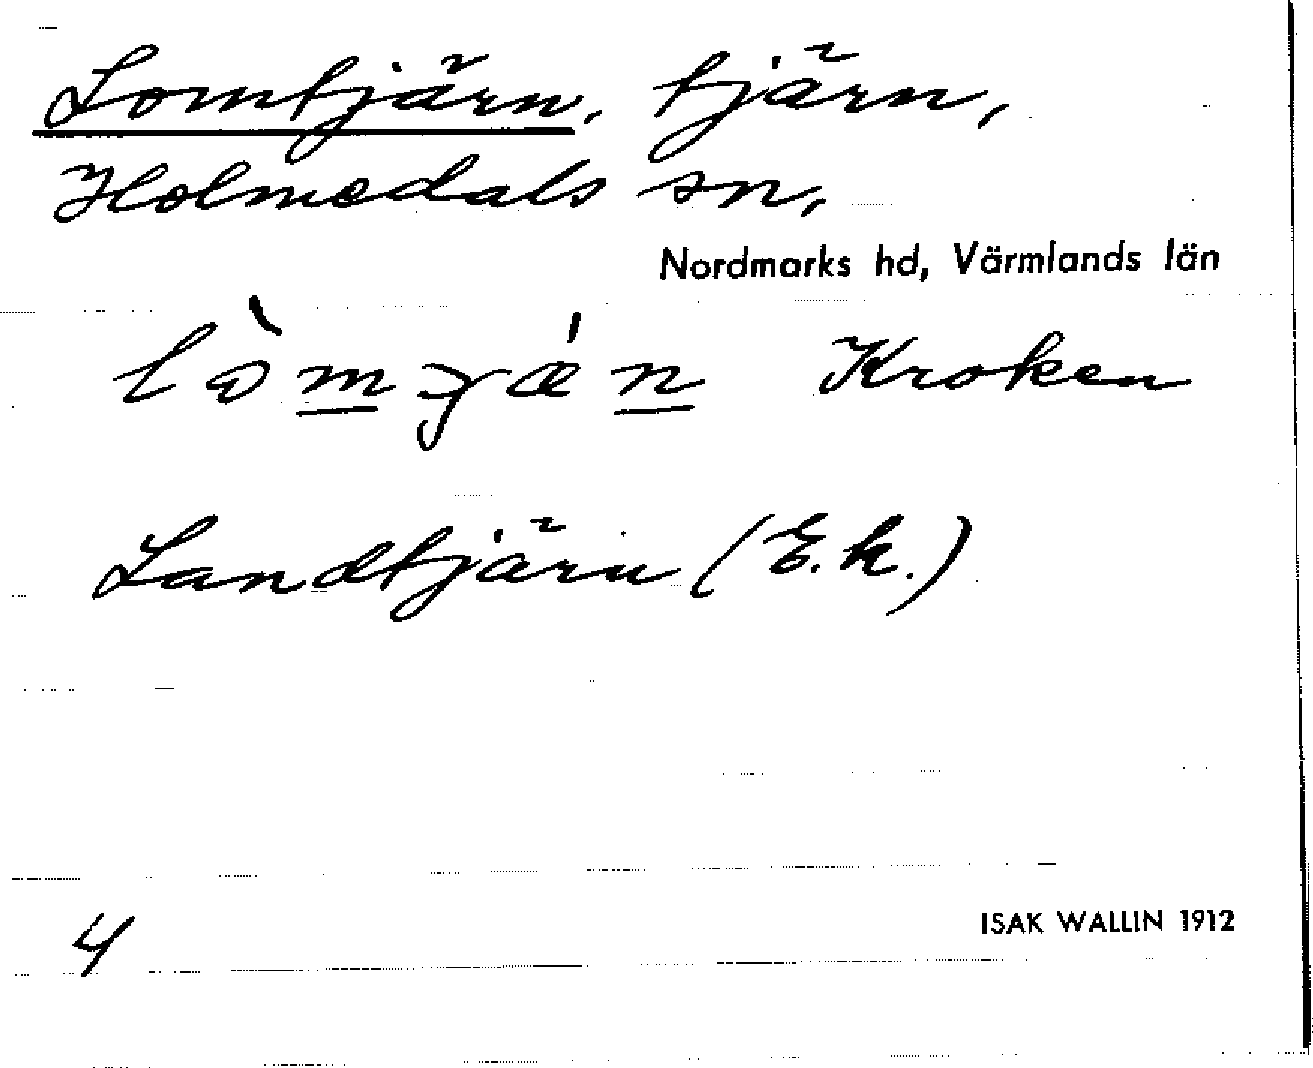 Lomtjärn, tjärn,
Holmedals sn,
Nordmarks hd, Värmlands län
Kroken
Landtjärn (E.k.)
ISAK WALLIN 1912
4